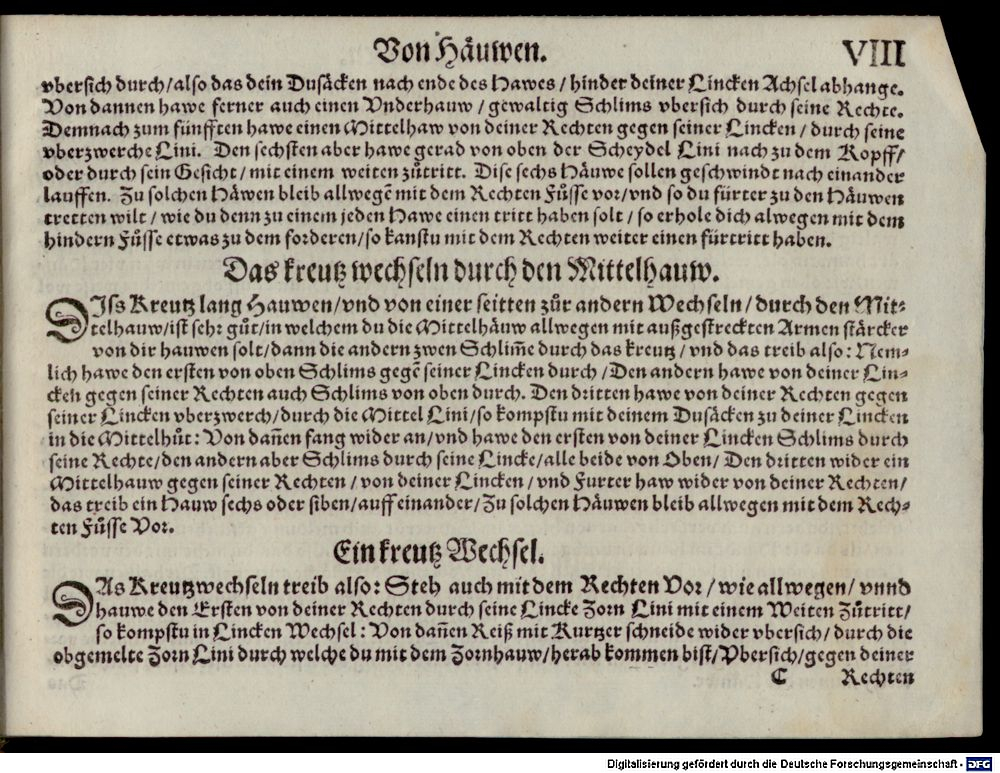 Von Häuwen. VIII
vbersich durch/also das dein Dusäcken nach ende des Hawes/hinder deiner Lincken Achsel abhange.
Von dannen hawe ferner auch einen Vnderhauw/gewaltig Schlims vbersich durch seine Rechte.
Demnach zum fünfften hawe einen Mittelhaw von deiner Rechten gegen seiner Lincken/durch seine
vberzwerche Lini. Den sechsten aber hawe gerad von oben der Scheydel Lini nach zu dem Kopff/
oder durch sein Gesicht/mit einem weiten zůtritt. Dise sechs Häuwe sollen geschwindt nach einander
lauffen. Zu solchen Häwen bleib allwegē mit dem Rechten Fůsse vor/vnd so du fürter zu den Häuwen
tretten wilt/wie du denn zu einem jeden Hawe einen tritt haben solt/so erhole dich alwegen mit dem
hindern Fůsse etwas zu dem forderen/so kanstu mit dem Rechten weiter einen fürtritt haben.
Das kreutz wechseln durch den Mittelhauw.
DIss Kreutz lang Hauwen/vnd von einer seitten zůr andern Wechseln/durch den Mit⸗
telhauw/ist sehr gůt/in welchem du die Mittelhäuw allwegen mit außgestreckten Armen stärcker
von dir hauwen solt/dann die andern zwen Schlim̄e durch das kreutz/vnd das treib also: Nem⸗
lich hawe den ersten von oben Schlims gegē seiner Lincken durch/Den andern hawe von deiner Lin⸗
cken gegen seiner Rechten auch Schlims von oben durch. Den dritten hawe von deiner Rechten gegen
seiner Lincken vberzwerch/durch die Mittel Lini/so kompstu mit deinem Dusäcken zu deiner Lincken
in die Mittelhůt: Von dan̄en fang wider an/vnd hawe den ersten von deiner Lincken Schlims durch
seine Rechte/den andern aber Schlims durch seine Lincke/alle beide von Oben/Den dritten wider ein
Mittelhauw gegen seiner Rechten/von deiner Lincken/vnd Furter haw wider von deiner Rechten/
das treib ein Hauw sechs oder siben/auff einander/Zu solchen Häuwen bleib allwegen mit dem Rech⸗
ten Fůsse Vor.
Ein kreutz Wechsel.
DAs Kreutzwechseln treib also: Steh auch mit dem Rechten Vor/wie allwegen/vnnd
hauwe den Ersten von deiner Rechten durch seine Lincke Zorn Lini mit einem Weiten Zůtritt/
so kompstu in Lincken Wechsel: Von dan̄en Reiß mit Kurtzer schneide wider vbersich/durch die
obgemelte Zorn Lini durch welche du mit dem Zornhauw/herab kommen bist/Vbersich/gegen deiner
C Rechten
Digitalisierung gefördert durch die Deutsche Forschungsgemeinschaft - DFG